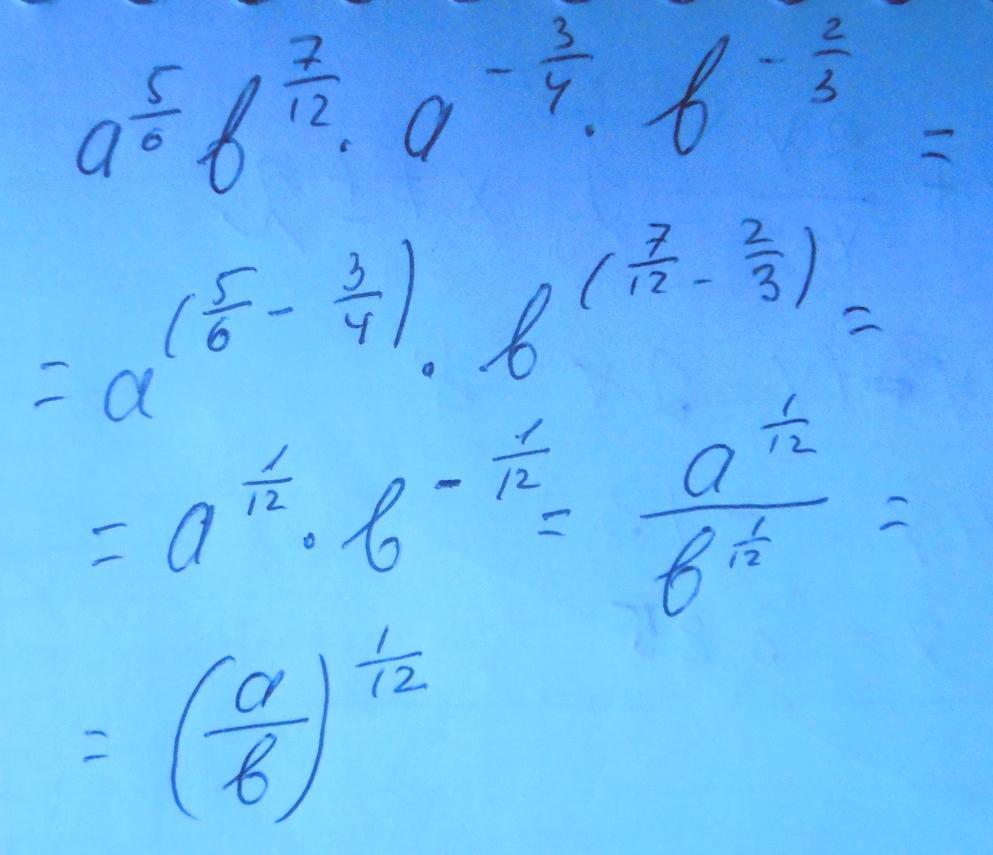 a^{5/6} b^{7/12} · a^{-3/4} · b^{-2/3} =
= a^{(5/6 - 3/4)} · b^{(7/12 - 2/3)} =
= a^{1/12} · b^{-1/12} = a^{1/12} / b^{1/12} =
= (a/b)^{1/12}